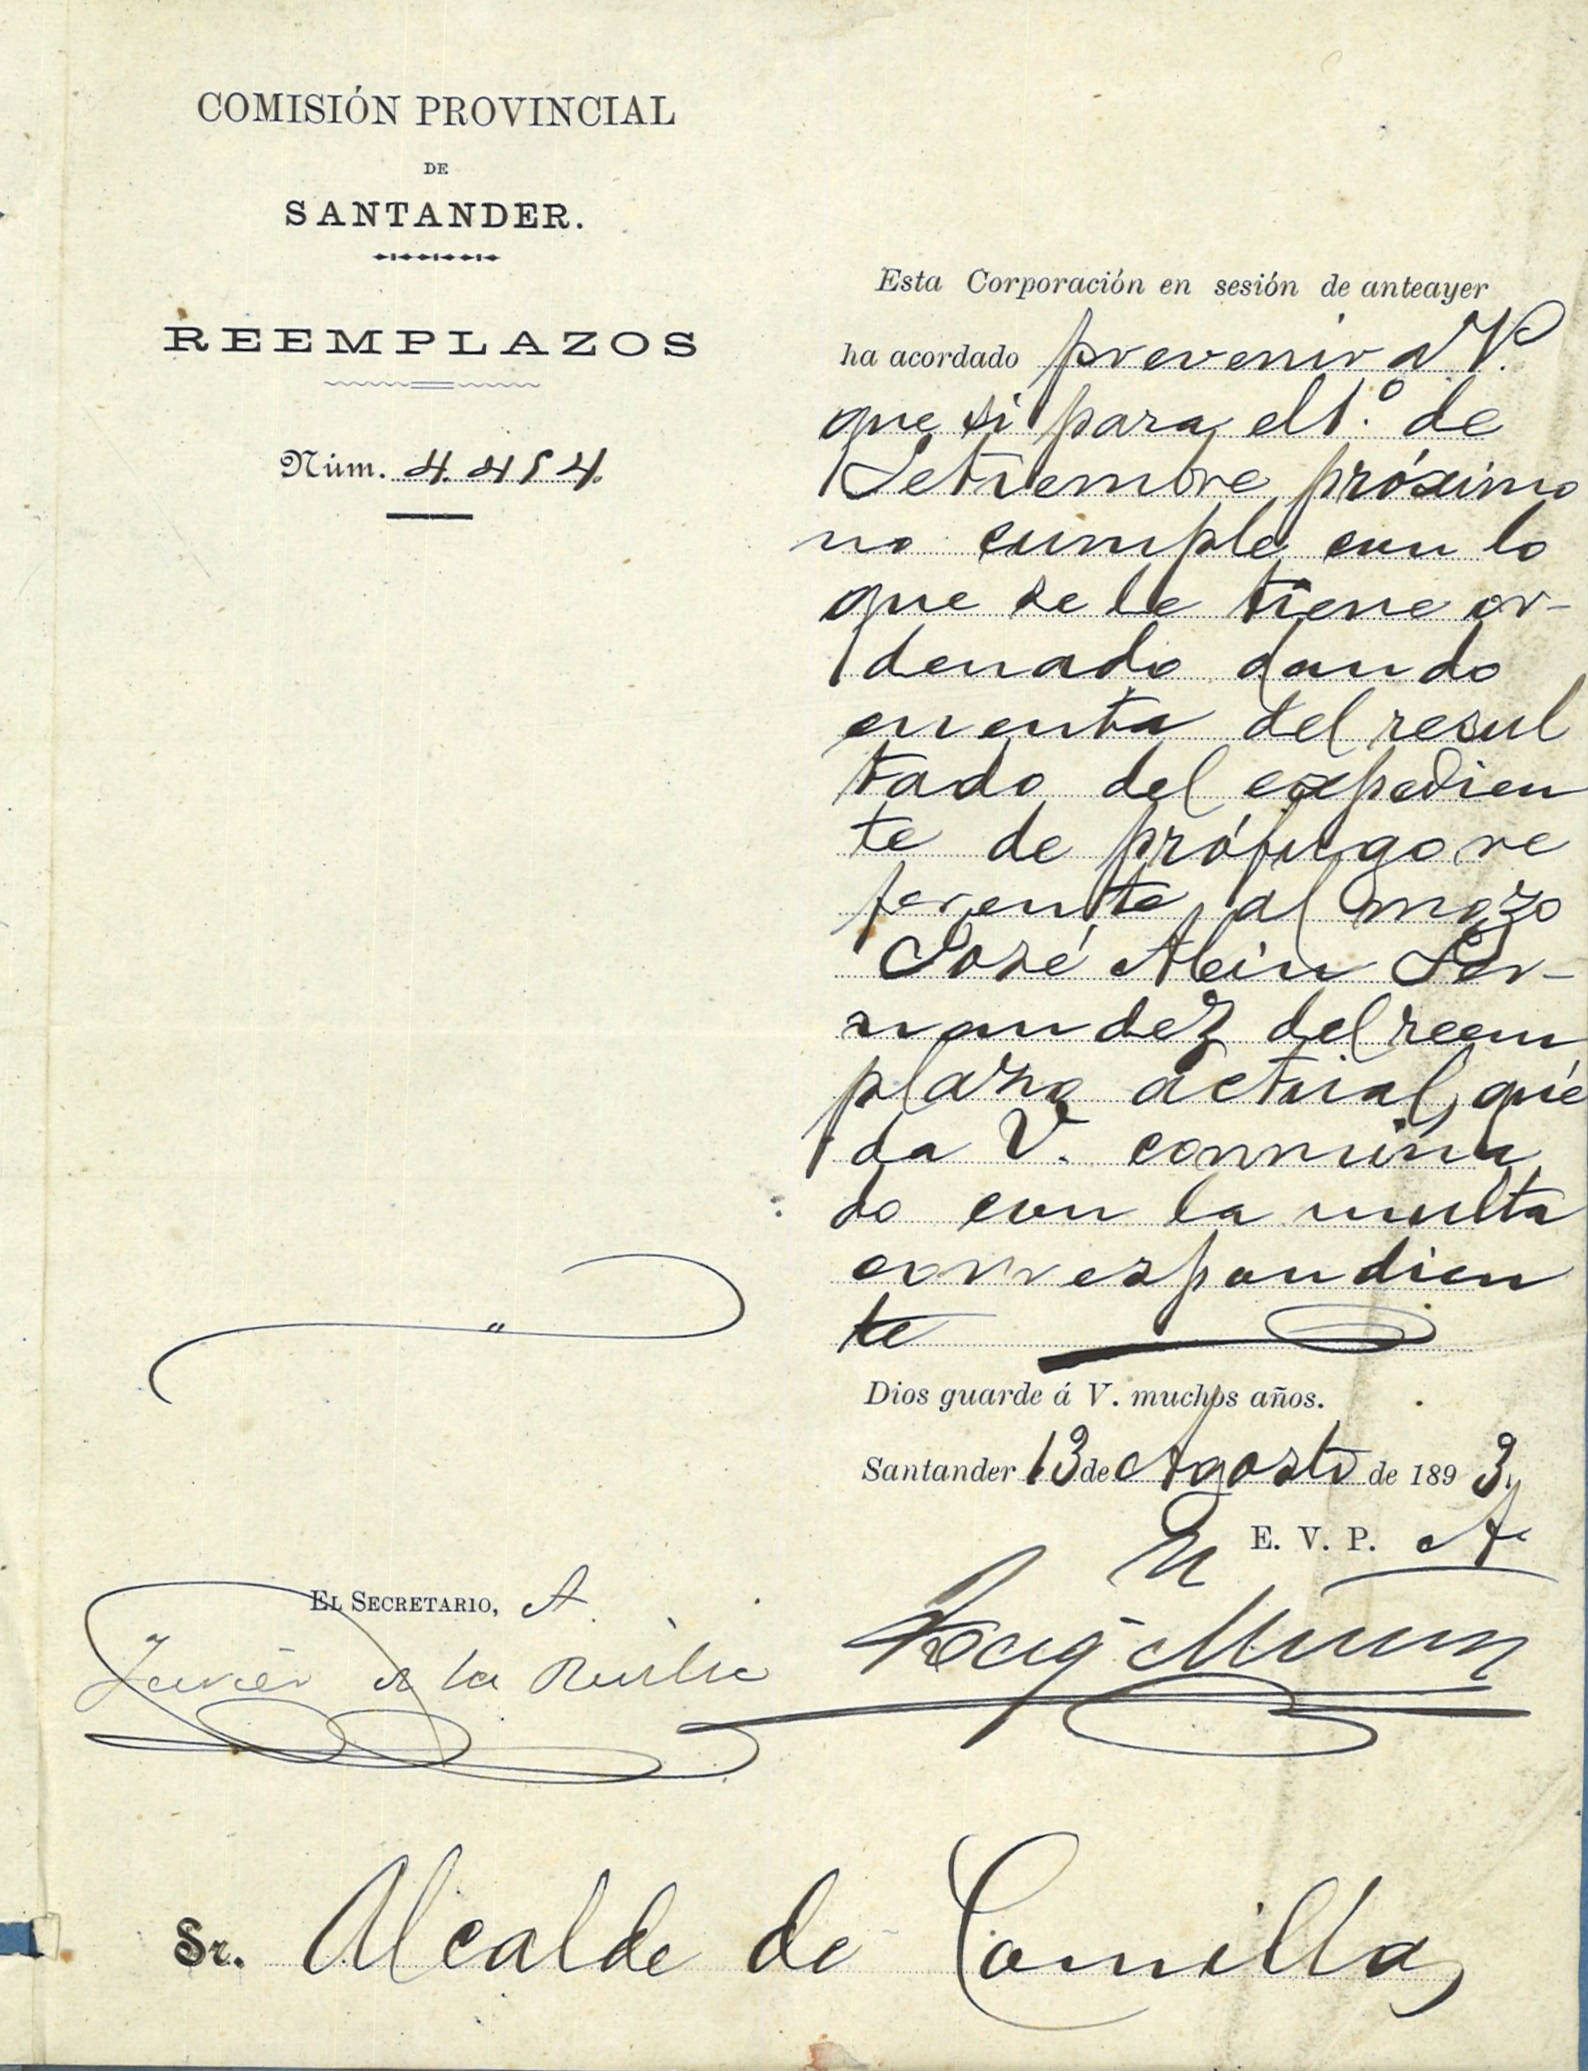 COMISIÓN PROVINCIAL
DE
SANTANDER.
REEMPLAZOS
Núm. 4.454.
Esta Corporación en sesión de anteayer
ha acordado prevenir a V.
que si para el 1.º de
Setiembre próximo
no cumple con lo
que se le tiene or-
denado dando
cuenta del resul
tado del expedien
te de prófugo re
ferente al mozo
José Abin Fer-
nandez del reem
plazo actual, que
da V. conmina
do con la multa
correspondien
te
Dios guarde á V. muchos años.
Santander 13 de Agosto de 1893.
E. V. P. A.
EL SECRETARIO, A.
Javier de la
Sr. Alcalde de Comillas